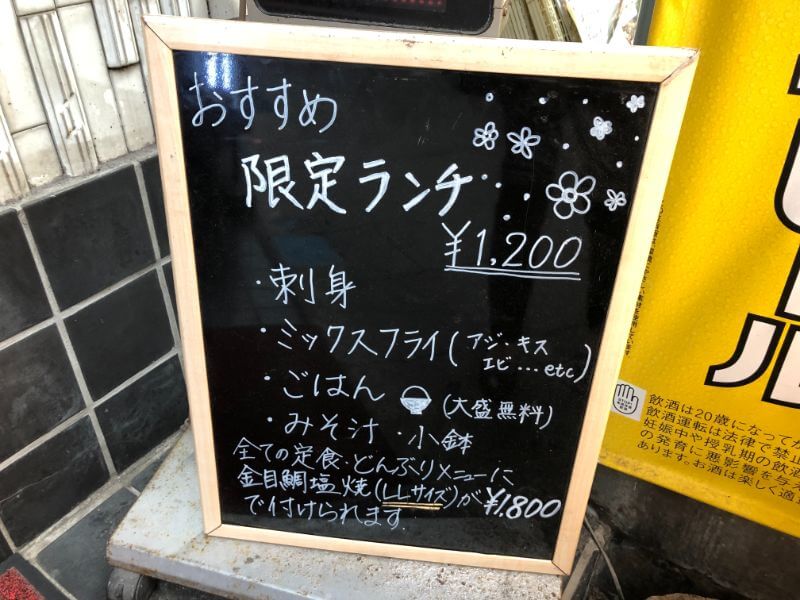 おすすめ
限定ランチ
¥1,200
・刺身
・ミックスフライ(アジ・キス
エビ…etc)
・ごはん (大盛無料)
・みそ汁・小鉢
全ての定食・どんぶりメニューに
金目鯛塩焼(LLサイズ)が ¥1,800
で付けられます
飲酒は20歳になってか
飲酒運転は法律で禁止
妊娠中や授乳期の飲酒
の発育に悪影響を与え
あります。お酒は楽しく適